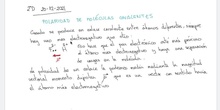 20-10-2021
POLARIDAD DE MOLÉCULAS COVALENTES
Cuando se produce un enlace covalente entre átomos diferentes, siempre
hay uno más electronegativo que otro:
hace que el par electrónico esté más próximo
al átomo más electronegativo y haya una separación
de cargas en la molécula.
de polaridad de un enlace la podemos medir mediante la magnitud
vectorial momento dipolar que es un vector con sentido hacia
el átomo más electronegativo